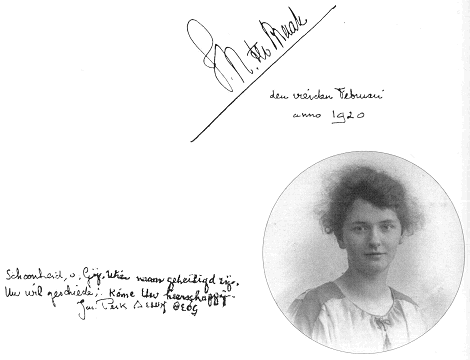 Braak
den vierden Februari
anno 1920
Schoonheid, o, Gij, Wier naam geheiligd zij,
Uw wil geschiede; Kome Uw heerschappij.
Jac. Perk ΘΕΟΣ